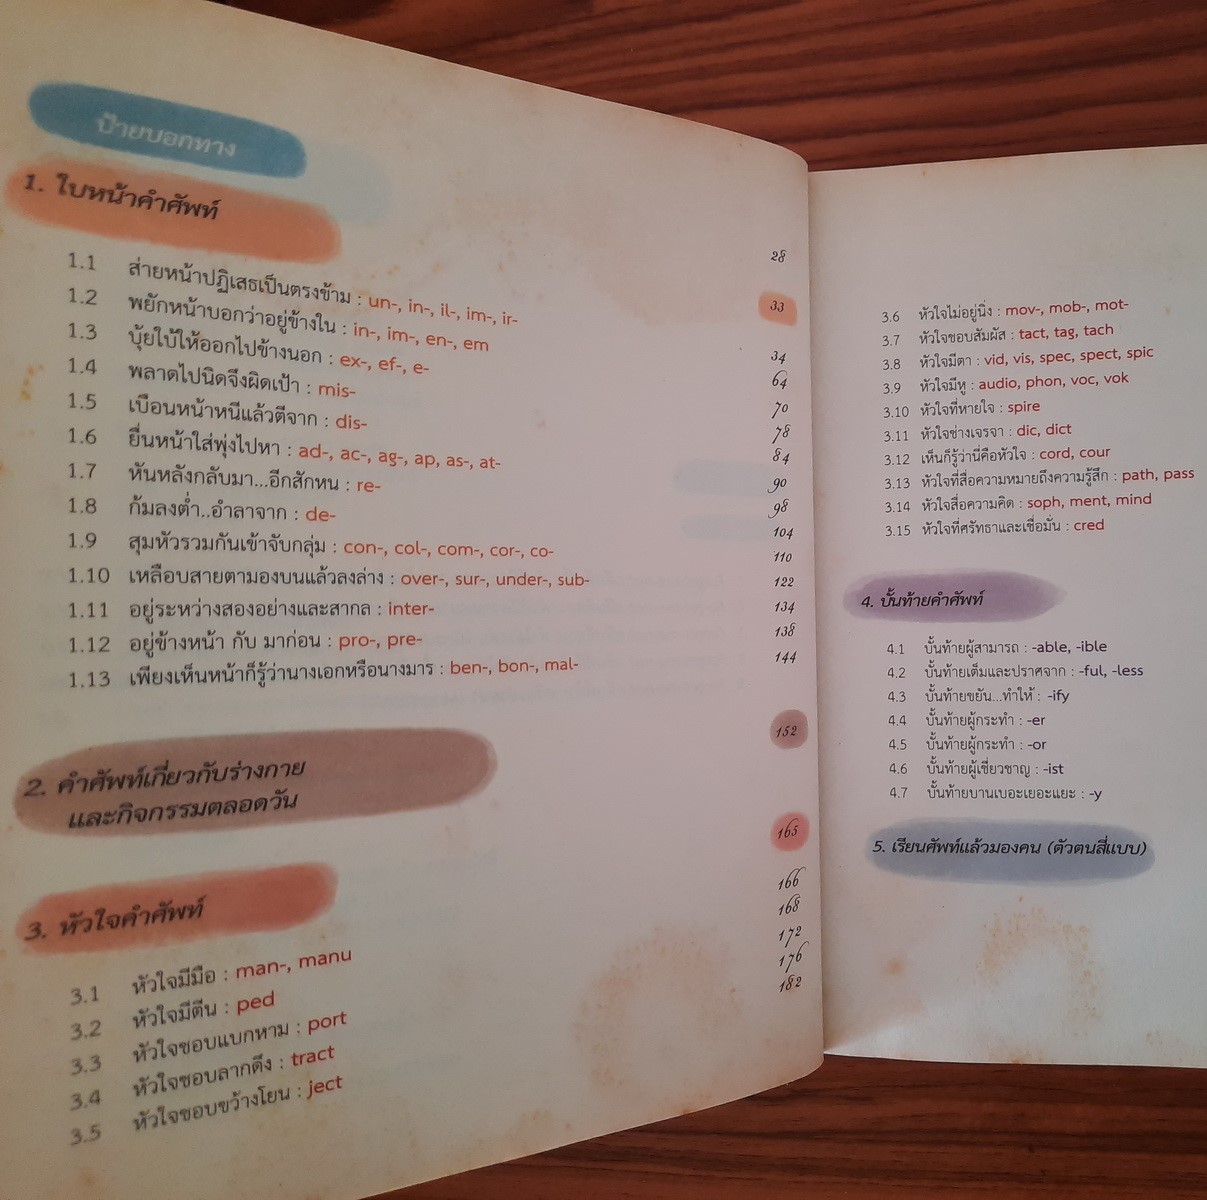 ป้ายบอกทาง 28
1. ใบหน้าคำศัพท์ 33
1.1 ส่ายหน้าปฏิเสธเป็นตรงข้าม : un-, in-, il-, im-, ir- 34
1.2 พยักหน้าบอกว่าอยู่ข้างใน : in-, im-, en-, em 64
1.3 บุ้ยใบ้ให้ออกไปข้างนอก : ex-, ef-, e- 70
1.4 พลาดไปนิดจึงผิดเป้า : mis- 78
1.5 เบือนหน้าหนีแล้วตีจาก : dis- 84
1.6 ยื่นหน้าใส่พุ่งไปหา : ad-, ac-, ag-, ap, as-, at- 90
1.7 หันหลังกลับมา...อีกสักหน : re- 98
1.8 ก้มลงต่ำ..อำลาจาก : de- 104
1.9 สุมหัวรวมกันเข้าจับกลุ่ม : con-, col-, com-, cor-, co- 110
1.10 เหลือบสายตามองบนแล้วลงล่าง : over-, sur-, under-, sub- 122
1.11 อยู่ระหว่างสองอย่างและสากล : inter- 134
1.12 อยู่ข้างหน้า กับ มาก่อน : pro-, pre- 138
1.13 เพียงเห็นหน้าก็รู้ว่านางเอกหรือนางมาร : ben-, bon-, mal- 144
2. คำศัพท์เกี่ยวกับร่างกาย 152
และกิจกรรมตลอดวัน
3. หัวใจคำศัพท์ 165
3.1 หัวใจมีมือ : man-, manu 166
3.2 หัวใจมีตีน : ped 168
3.3 หัวใจชอบแบกหาม : port 172
3.4 หัวใจชอบลากดึง : tract 176
3.5 หัวใจชอบขว้างโยน : ject 182
3.6 หัวใจไม่อยู่นิ่ง : mov-, mob-, mot-
3.7 หัวใจชอบสัมผัส : tact, tag, tach
3.8 หัวใจมีตา : vid, vis, spec, spect, spic
3.9 หัวใจมีหู : audio, phon, voc, vok
3.10 หัวใจที่หายใจ : spire
3.11 หัวใจช่างเจรจา : dic, dict
3.12 เห็นก็รู้ว่านี่คือหัวใจ : cord, cour
3.13 หัวใจที่สื่อความหมายถึงความรู้สึก : path, pass
3.14 หัวใจสื่อความคิด : soph, ment, mind
3.15 หัวใจที่ศรัทธาและเชื่อมั่น : cred
4. บั้นท้ายคำศัพท์
4.1 บั้นท้ายผู้สามารถ : -able, -ible
4.2 บั้นท้ายเต็มและปราศจาก : -ful, -less
4.3 บั้นท้ายขยัน...ทำให้ : -ify
4.4 บั้นท้ายผู้กระทำ : -er
4.5 บั้นท้ายผู้กระทำ : -or
4.6 บั้นท้ายผู้เชี่ยวชาญ : -ist
4.7 บั้นท้ายบานเบอะเยอะแยะ : -y
5. เรียนศัพท์แล้วมองคน (ตัวตนสี่แบบ)